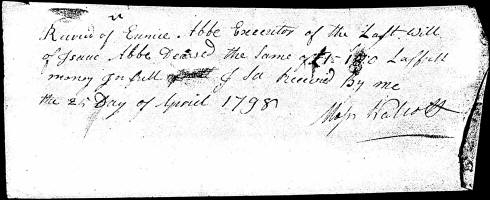 Recivd of Eunice Abbe Executor of the Last Will
of Isaac Abbe the Same of Lawfull
money In full of Received By me
the 25 Day of April 1798